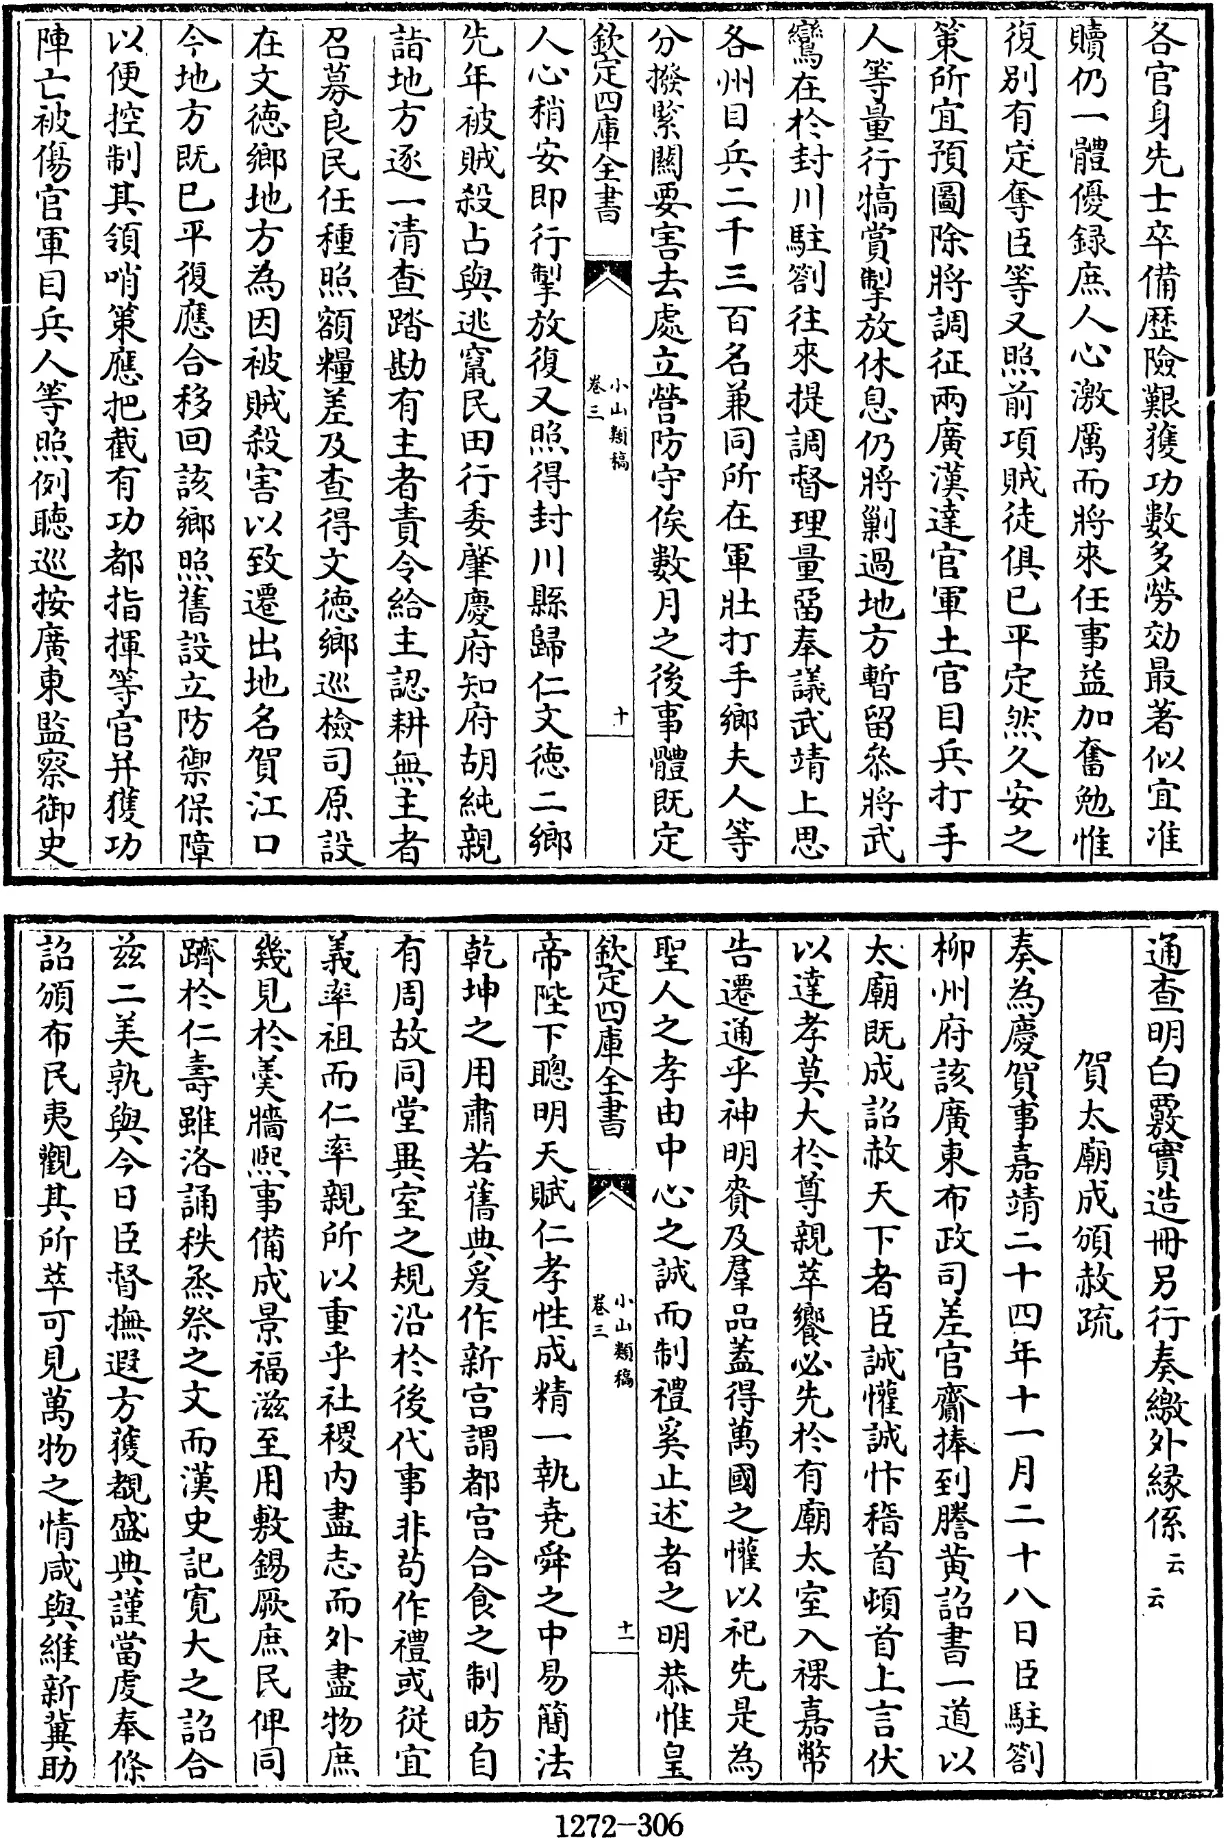 各官身先士卒備歷險艱獲功數多勞効最著似宜准
贖仍一體優録庶人心激厲而將來任事益加奮勉惟
復別有定奪臣等又照前項賊徒俱已平定然久安之
策所宜預圖除將調征兩廣漢達官軍土官目兵打手
人等量行犒賞掣放休息仍將剿過地方暫留叅將武
鸞在於封川駐劄往來提調督理量留奉議武靖上思
各州目兵二千三百名兼同所在軍壯打手鄉夫人等
分撥緊關要害去處立營防守俟數月之後事體既定
欽定四庫全書
小山類稿
卷三
十
人心稍安即行掣放復又照得封川縣歸仁文德二鄉
先年被賊殺占與逃竄民田行委肇慶府知府胡純親
詣地方逐一清查踏勘有主者責令給主認耕無主者
召募良民任種照額糧差及查得文德鄉巡檢司原設
在文德鄉地方為因被賊殺害以致遷出地名賀江口
今地方既已平復應合移回該鄉照舊設立防禦保障
以便控制其領哨策應把截有功都指揮等官并獲功
陣亡被傷官軍目兵人等照例聽巡按廣東監察御史
通查明白覈實造冊另行奏繳外緣係云云
賀太廟成頒赦疏
奏為慶賀事嘉靖二十四年十一月二十八日臣駐劄
柳州府該廣東布政司差官齎捧到謄黃詔書一道以
太廟既成詔赦天下者臣誠懽誠忭稽首頓首上言伏
以達孝莫大於尊親萃饗必先於有廟太室入祼嘉幣
告遷通乎神明賚及羣品蓋得萬國之懽以祀先是為
聖人之孝由中心之誠而制禮奚止述者之明恭惟皇
欽定四庫全書
小山類稿
卷三
十一
帝陛下聰明天賦仁孝性成精一執堯舜之中易簡法
乾坤之用肅若舊典爰作新宮謂都宮合食之制昉自
有周故同堂異室之規沿於後代事非苟作禮或從宜
義率祖而仁率親所以重乎社稷内盡志而外盡物庶
幾見於羹牆熙事備成景福滋至用敷錫厥庶民俾同
躋於仁壽雖洛誦秩烝祭之文而漢史記寛大之詔合
兹二美孰與今日臣督撫遐方獲覩盛典謹當虔奉條
詔頒布民夷觀其所萃可見萬物之情咸與維新冀助
1272-306